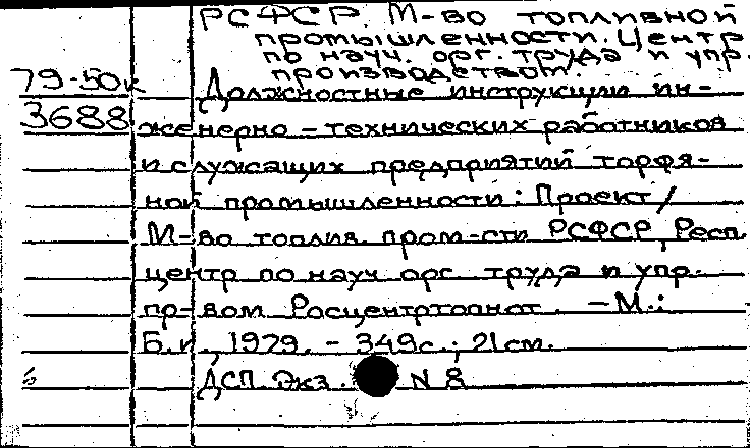 РСФСР. М-во топливной
промышленности. Центр
по науч. орг. труда и упр.
производством.
79-50к
Должностные инструкции ин-
3688
женерно-технических работников
и служащих предприятий торфя-
ной промышленности: Проект /
М-во топлив. пром-сти РСФСР, Респ.
центр по науч. орг. труда и упр.
пр-вом
– М.:
Б.и., 1979. – 349с.; 21см.
ДСП. Экз. N 8